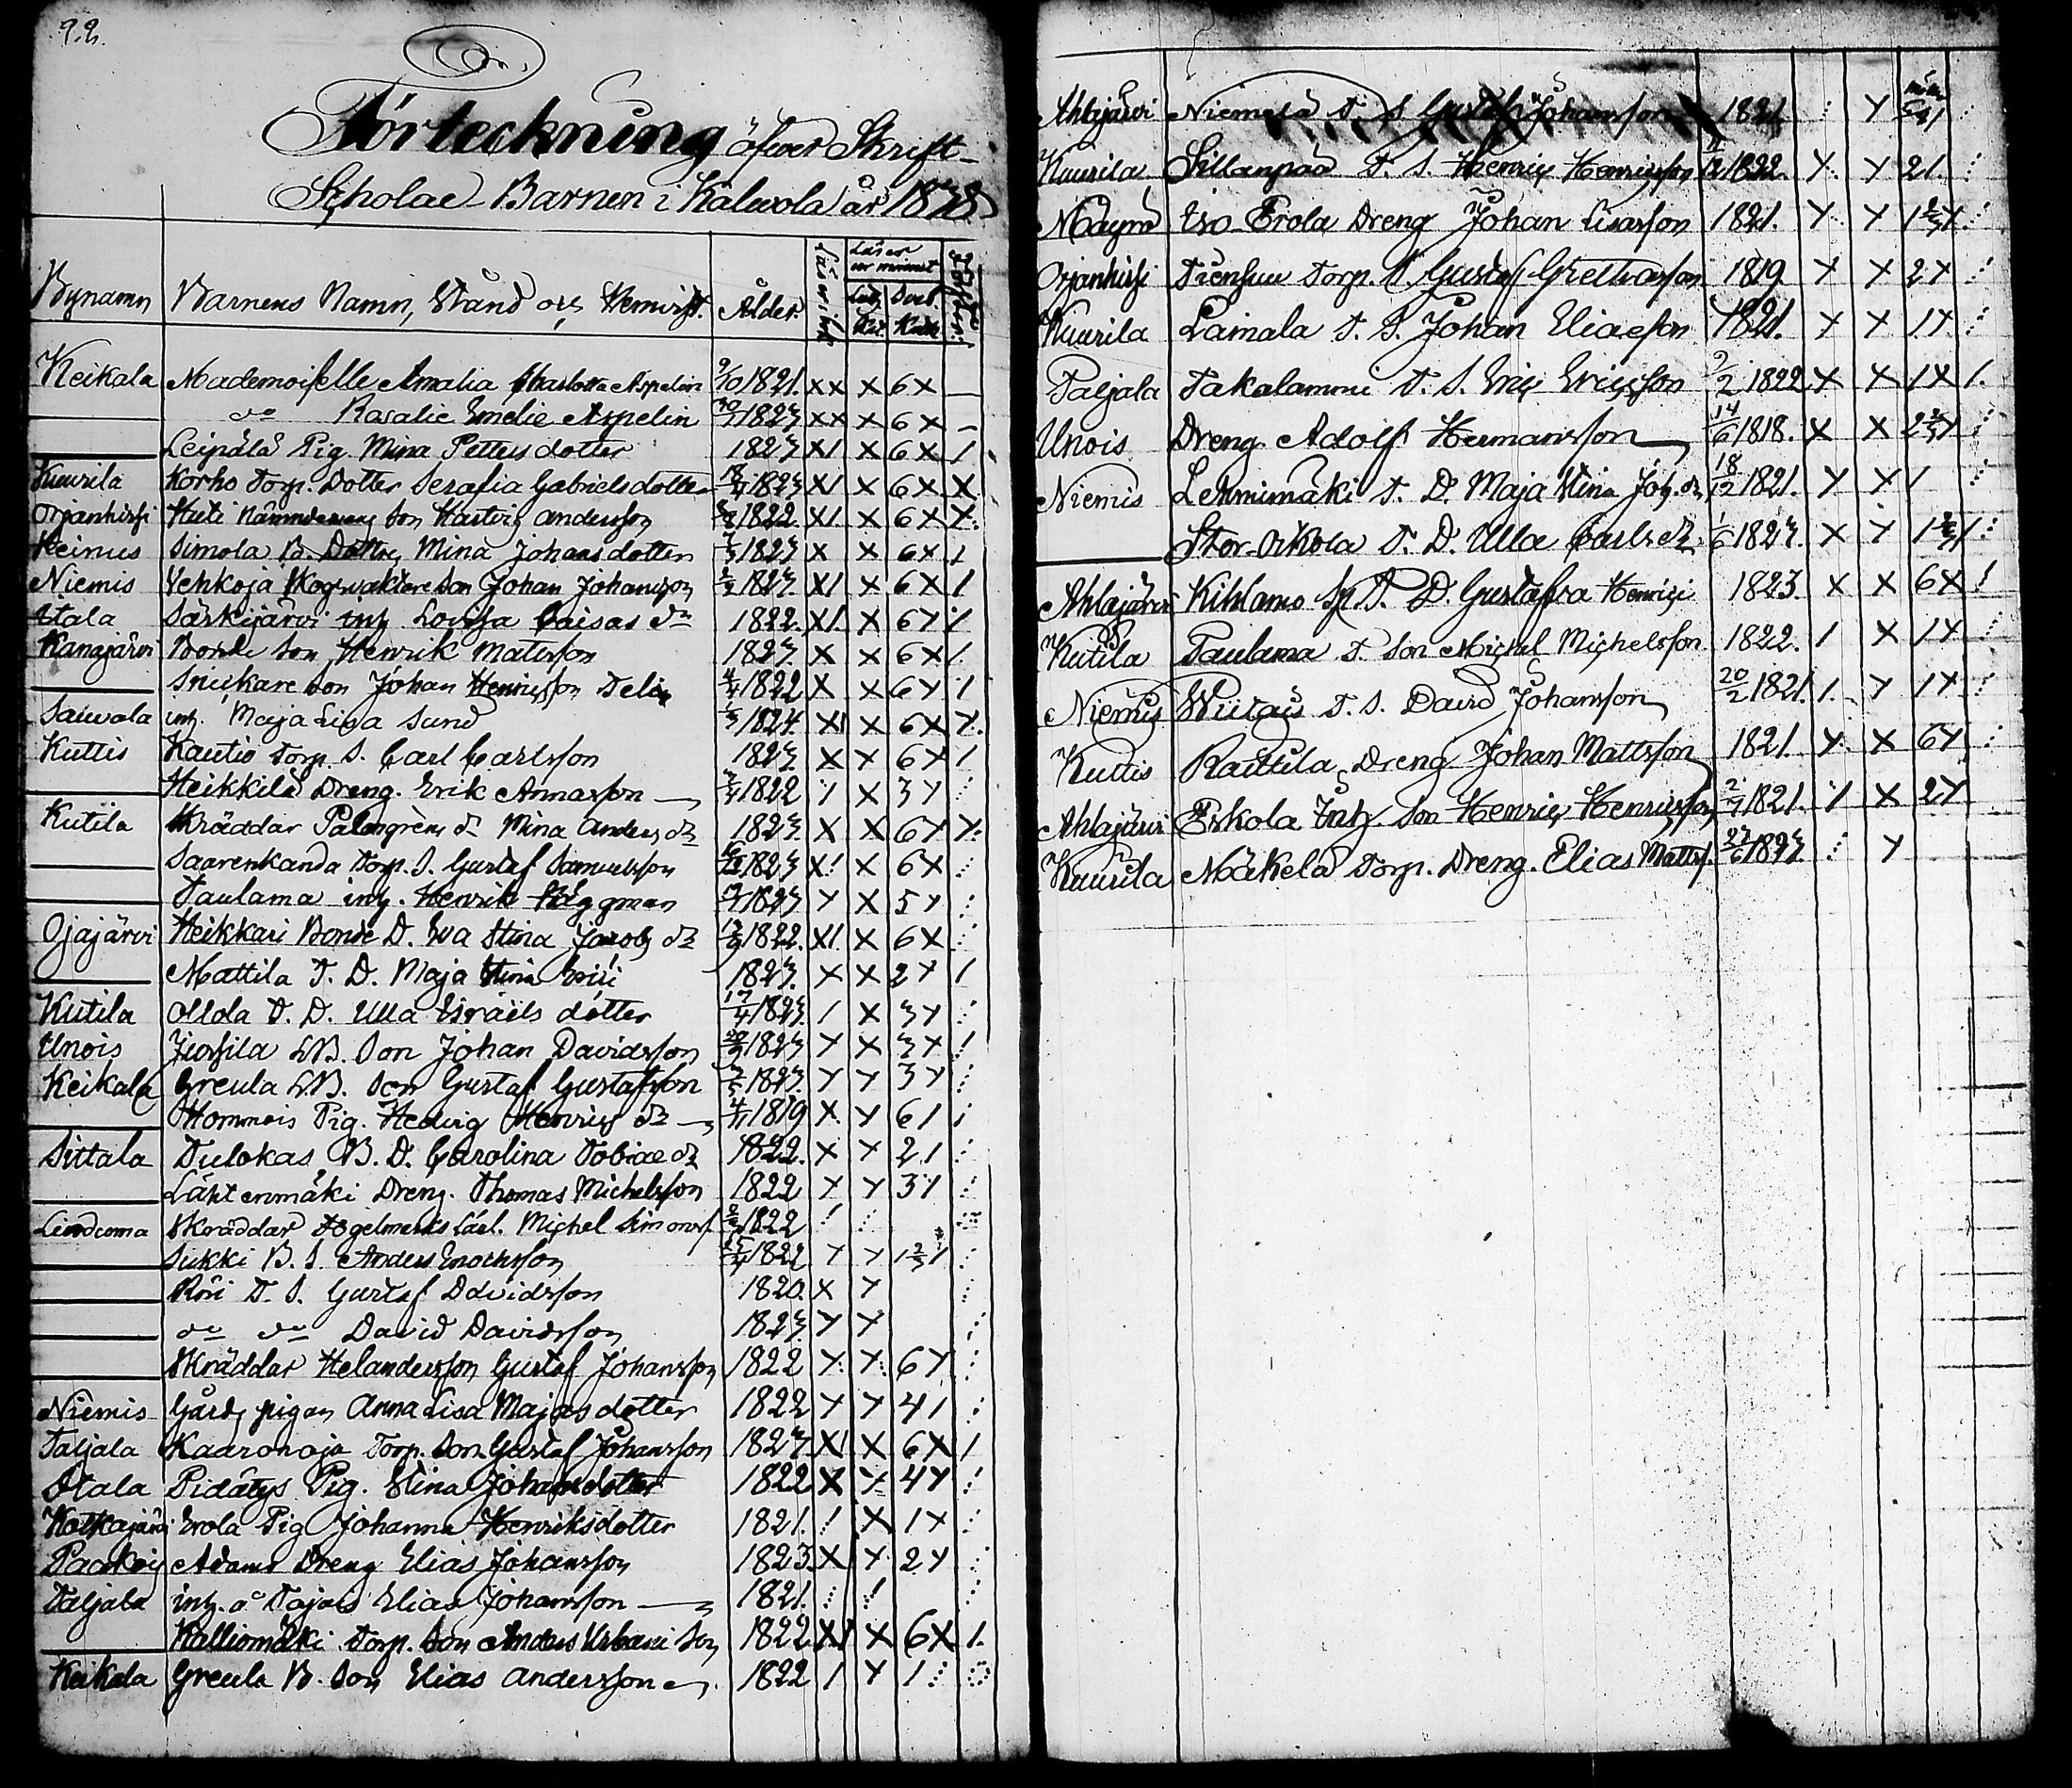 Förteckning öfwer Skrift-
Scholae Barnen i Kalwola år 1838
Bynamn Barnens Namn, Stånd och Hemvist. Ålder. Läser ur minnet
Keikala Mademoiselle Amalia Charlotta Aspelin 9/10 1821. XX X 6X
do Rosalie Emelie Aspelin 1823 XX X 6X
Leipälä Pig. Mina Petters dotter 1823 XI X 6X 1
Kuurila Korho Torp. Dotter Serafia Gabriels dotter 1823 XI X 6X X
Orjanhirsi Huti Son Hartvig Andersson 1822. XI. X 6X X.
Heinus Simola B. Dotter Mina Johans dotter 1823 X X 6X
Niemis Vehkoja Skogvaktare Son Johan Johansson 1823. XI X 6X 1
Itala Särkijärvi inh. Lovisa Caisas dr 1822. XI. X 6X 1
Kanajärvi Bonde Son Henrik Matsson 1823. X X 6X 1.
Snickare Son Johan Henricsson Telin 1822 X X 6X 1
Sauvala inh. Maja Lisa Sund 1824. XI X 6X X.
Kuttis Kautio Torp. S. Carl Carlsson 1823 X X 6X 1
Heikkilä Dreng. Erik Annasson 1822 1 X 3X
Kutila Skräddar Palmgrens dr Mina Anders dr 1823. X X 6X X.
Saarenkanda Torp. S. Gustaf Samuelsson 1823 X! X 6X
Taulama inh. Henrik Häggman 1823 X X 5X
Ojajärvi Heikkari Bonde D. Eva Stina Jacobs dr 1822. XI. X 6X
Mattila T. D. Maja Stina Erici 1823. X X 2X 1
Kutila Ollola T. D. Ulla Israels dotter 17/4 1823. 1 X 3X
Unois Jussila LB. Son Johan Davidsson 1823 X X 3X !
Keikala Greula LB. Son Gustaf Gustafsson 1823. X X 3X
Hommois Pig. Hedvig Henrics dr 1819 X X 61
Sittala Tulokas B. D. Carolina Tobiae dr 1822. X X 21
Lähtenmäki Dreng. Thomas Michelsson 1822 X X 31
Skräddar Lärl. Michel Simonss. 1822 !
Sukki B. S. Anders Enochsson 1822 X X 1 2/3 1
Röri T. S. Gustaf Davidsson 1820. X X
do do David Davidsson 1823. X X
Skräddar Helandersson Gustaf Johansson 1822 X. X. 6X
Niemis Gårds pigan Anna Lisa Majas dotter 1822 X X 41
Taljala Kaaronoja Torp. Son Gustaf Johansson 1823. XI X 6X 1
Itala Pidätys Pig. Stina Johansdotter 1822 X X 4X
Kotkajärvi Erola Pig Johanna Henriksdotter 1821. ! X 1X
Paakoi Adams Dreng Elias Johansson 1823 X X 2X
Taljala inh. Elias Johansson 1821.
Kalliomäki Torp. Son Anders Urbani Son 1822 XI X 6X 1.
Keikala Greula B. Son Elias Andersson 1822 1 X 1
Ahlajärvi Niemelä T. S. Gustaf Johansson 1821 X
Kuurila Sillanpää T. S. Henric Henricsson 1822. X. X 21.
Mäyrä Iso-Erola Dreng Johan Lisasson 1821. X. X
Orjanhirsi Tiensuu Torp. S. Gustaf Grethasson 1819 X X 2X
Kuurila Laimala T. S. Johan Eliaeson 1821. X X 1X
Taljala Takalammi T. S. Eric Ericsson 9/2 1822 X X 1X 1.
Unois Dreng Adolf Hermansson 14/6 1818. X X
Niemis Lehmimäki T. D. Maja Stina Joh. dr 18/12 1821. X X 1
Stor-Orkola T. D. Ulla Carls dr 1/6 1823. X X
Ahlajärvi Kihlamo T. D. Gustafva Henrici 1823. X X 6X !
Kutila Taulama T. Son Michel Michelsson 1822. 1 X 1X
Niemis Wiitais T. S. David Johansson 20/2 1821. 1. X 1X
Kuttis Rauttila Dreng Johan Mattsson 1821 X. X 6X
Ahlajärvi Eskola Inh. Son Henric Henricsson 1821. 1 X 2X
Kuurila Mäkelä Torp. Dreng. Elias Mattss. 1823. X